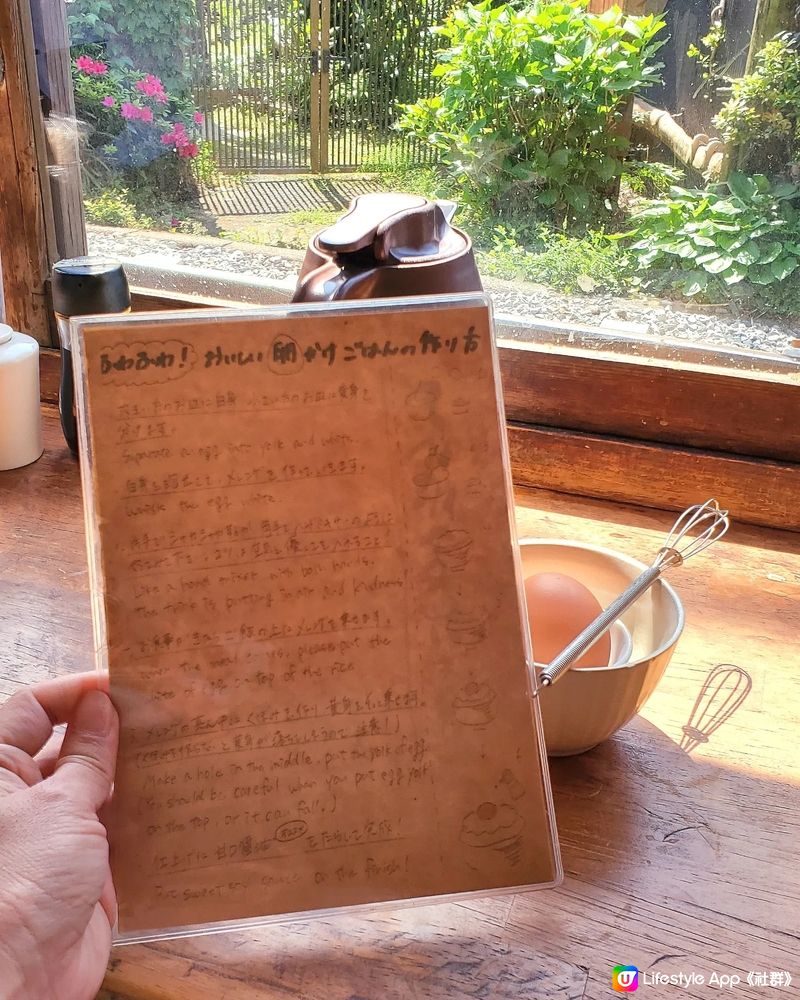 ふわふわ！ おいしい卵かけごはんの作り方
大きい方のお皿に白身 小さい方のお皿に黄身を
分けます。
Separate a egg into yolk and white.
メレンゲを作っていきます。
whisk the egg white.
Like a hand mixer with both hands.
The trick is putting in air and kindness!
お食事がきたらご飯の上にメレンゲを乗せます。
when the meal comes, please put the
white of egg on top of the rice
メレンゲの真ん中にくぼみを作り 黄身を上に乗せます。
Make a hole in the middle, put the yolk of egg.
(You should be careful when you put egg yolk
on the top, or it can fall.)
仕上げに甘口醤油 をたらして完成！
Put sweet soy sauce on the finish!
Lifestyle App《社群》